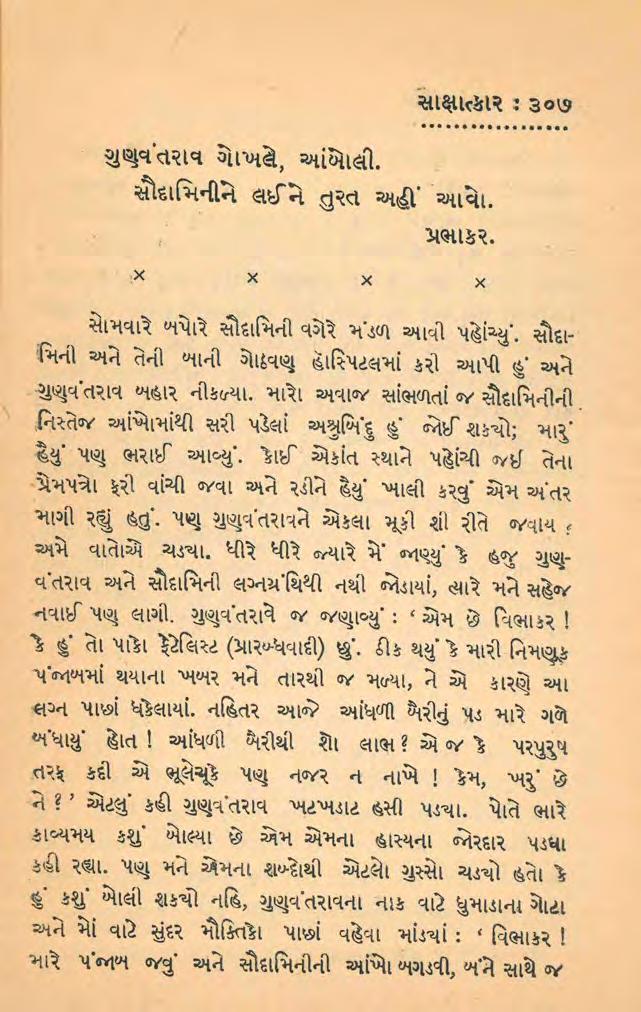 સાક્ષાત્કાર : ૩૦૭
ગુણવંતરાવ ગોખલે, આંબોલી.
સૌદામિનીને લઈને તુરત અહીં આવો.
પ્રભાકર.
× × × ×
સોમવારે બપોરે સૌદામિની વગેરે મંડળ આવી પહોંચ્યું. સૌદા-
મિની અને તેની બાની ગોઠવણ હૉસ્પિટલમાં કરી આપી હું અને
ગુણવંતરાવ બહાર નીકળ્યા. મારો અવાજ સાંભળતાં જ સૌદામિનીની
નિસ્તેજ આંખોમાંથી સરી પડેલાં અશ્રુબિંદુ હું જોઈ શકયો; મારું
હૈયું પણ ભરાઈ આવ્યું. કોઈ એકાંત સ્થાને પહોંચી જઇ તેના
પ્રેમપત્રો ફરી વાંચી જવા અને રડીને હૈયું ખાલી કરવું એમ અંતર
માગી રહ્યું હતું. પણ ગુણવંતરાવને એકલા મૂકી શી રીતે જવાય ?
અમે વાતોએ ચડયા. ધીરે ધીરે જ્યારે મેં જાણ્યું કે હજુ ગુણ-
વંતરાવ અને સૌદામિની લગ્નગ્રંથિથી નથી જોડાયાં, ત્યારે મને સહેજ
નવાઈ પણ લાગી. ગુણવંતરાવે જ જણાવ્યું : ‘ એમ છે વિભાકર !
કે હું તો પાકો ફેટેલિસ્ટ (પ્રારબ્ધવાદી) છું. ઠીક થયું કે મારી નિમણુક
પંજાબમાં થયાના ખબર મને તારથી જ મળ્યા, ને એ કારણે આ
લગ્ન પાછાં ધકેલાયાં. નહિતર આજે આંધળી બૈરીનું પડ મારે ગળે
બંધાયું હોત ! આંધળી બૈરીથી શો લાભ ? એ જ કે પરપુરુષ
તરફ કદી એ ભૂલેચૂકે પણ નજર ન નાખે ! કેમ, ખરું છે
ને ? ’ એટલું કહી ગુણવંતરાવ ખટખડાટ હસી પડયા. પોતે ભારે
કાવ્યમય કશું બોલ્યા છે એમ એમના હાસ્યના જોરદાર પડઘા
કહી રહ્યા. પણ મને એમના શબ્દોથી એટલો ગુસ્સો ચડયો હતો કે
હું કશું બોલી શકયો નહિ, ગુણવંતરાવના નાક વાટે ધુમાડાના ગોટા
અને મોં વાટે સુંદર મૌક્તિકો પાછાં વહેવા માંડયાં : ‘ વિભાકર !
મારે પંજાબ જવું અને સૌદામિનીની આંખો બગડવી, બંને સાથે જ